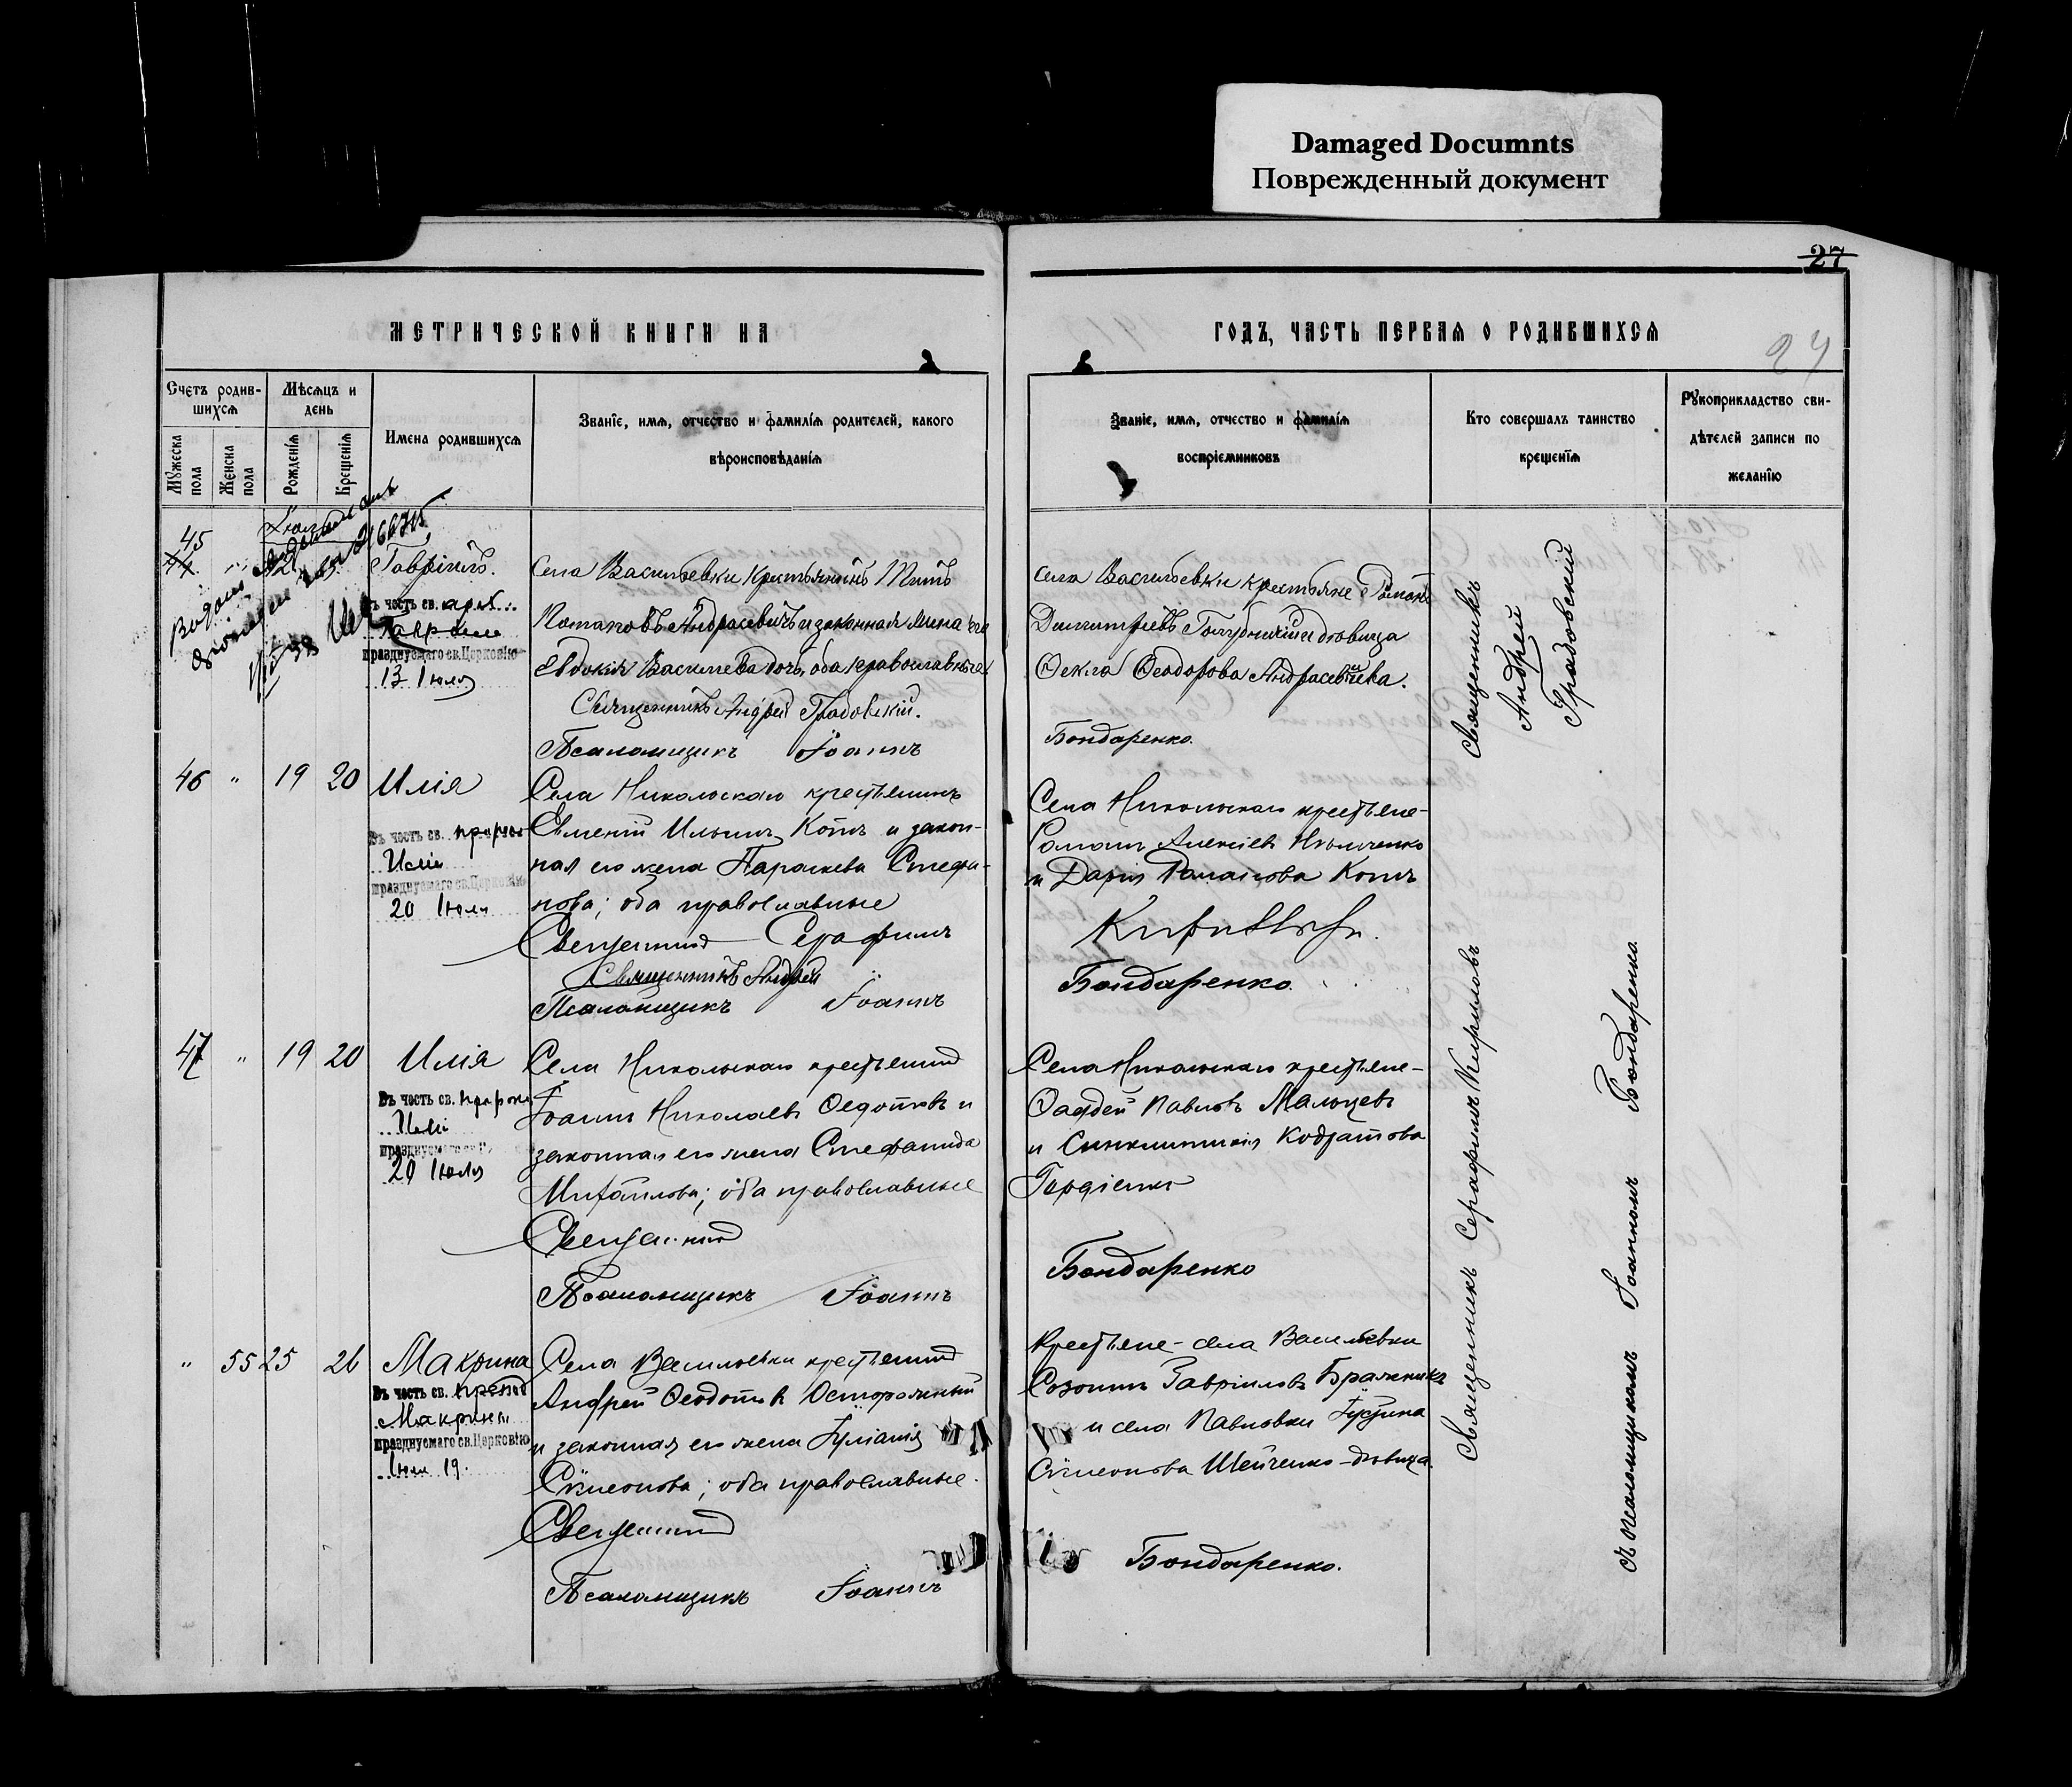 Damaged Documnts
Поврежденный документ
27
МЕТРИЧЕСКОЙ КНИГИ НА
ГОДЪ, ЧАСТЬ ПЕРВАЯ О РОДИВШИХСЯ
27
Счетъ родив-
шихся
Мѣсяцъ и
день
Мужеска
пола
Женска
пола
Рожденія
Крещенія
Имена родившихся
Званіе, имя, отчество и фамилія родителей, какого
вѣроисповѣданія
Званіе, имя, отчество и фамилія
воспріемниковъ
Кто совершалъ таинство
крещенія
Рукоприкладство сви-
дѣтелей записи по
желанію
45
Гавріилъ.
Въ честь св. арх.
Гавріила
празднуемаго св. Церковію
13 Іюля
Села Васильевки крестьянинъ Титъ
Потаповъ Андрасевичъ и законная жена его
Евдокія Васильева дочь, оба православные
Священникъ Андрей Градовскій.
Псаломщикъ Іоаннъ
села Васильевки крестьяне Романъ
Димитріевъ Голубничій и дѣвица
Ѳекла Ѳеодорова Андрасевичева.
Бондаренко.
Священникъ
Андрей
Градовскій
46 " 19 20 Илія
Въ честь св. пророка
Иліи
празднуемаго св. Церковію
20 Іюля
Села Никольскаго крестьянинъ
Евменій Ильинъ Котъ и закон-
ная его жена Параскева Стефа-
нова; оба православные
Священникъ Серафимъ
Священникъ Андрей
Псаломщикъ Іоаннъ
Села Никольскаго крестьяне-
Романъ Алексіевъ
и Дарія Романова Котъ
Кириловъ.
Бондаренко.
47 " 19 20 Илія
Въ честь св. пророка
Иліи
празднуемаго
20 Іюля
Села Никольскаго крестьянинъ
Іоаннъ Николаевъ Ѳедотовъ и
законная его жена Стефанида
Михаилова; оба православные
Священникъ
Псаломщикъ Іоаннъ
Села Никольскаго крестьяне-
Фаддей Павловъ Мальцевъ
и Синклитикія Кодратова
Гордіенко
Бондаренко
" 55 25 26 Макрина
Въ честь св. препод
Макрины
празднуемаго св. Церковію
Іюля 19.
Села Васильевки крестьянинъ
Андрей Ѳеодотовъ Осторожный
и законная его жена Іуліанія
Сѵмеонова; оба православные.
Священникъ
Псаломщикъ Іоаннъ
Крестьяне - села Васильевки
Созонтъ Гавріиловъ Бражникъ
и села Павловки Іустина
Сѵмеонова Шейченко - дѣвица.
Бондаренко.
Священникъ Серафимъ Кириловъ
съ псаломщикомъ Іоанномъ Бондаренко